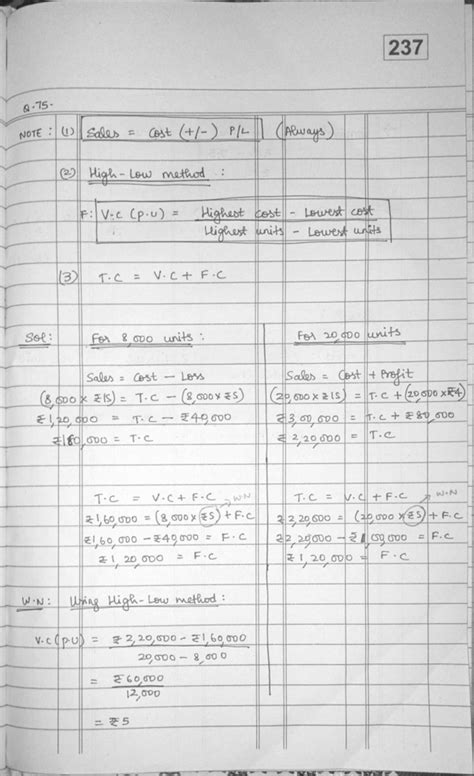 237
Q.75.
NOTE : (1) Sales = Cost (+/-) P/L (Always)
(2) High-Low method :
F: V.C (P.U) = Highest cost - Lowest cost
Highest units - Lowest units
(3) T.C = V.C + F.C
Sol: For 8,000 units :
Sales = Cost - Loss
(8,000 x ₹15) = T.C - (8,000 x ₹5)
₹1,20,000 = T.C - ₹40,000
₹1,60,000 = T.C
T.C = V.C + F.C W.N
₹1,60,000 = (8,000 x ₹5) + F.C
₹1,60,000 - ₹40,000 = F.C
₹1,20,000 = F.C
For 20,000 units
Sales = Cost + Profit
(20,000 x ₹15) = T.C + (20,000 x ₹4)
₹3,00,000 = T.C + ₹80,000
₹2,20,000 = T.C
T.C = V.C + F.C W.N
₹2,20,000 = (20,000 x ₹5) + F.C
₹2,20,000 - ₹1,00,000 = F.C
₹1,20,000 = F.C
W.N: Using High-Low method :
V.C (P.U) = ₹2,20,000 - ₹1,60,000
20,000 - 8,000
= ₹60,000
12,000
= ₹5